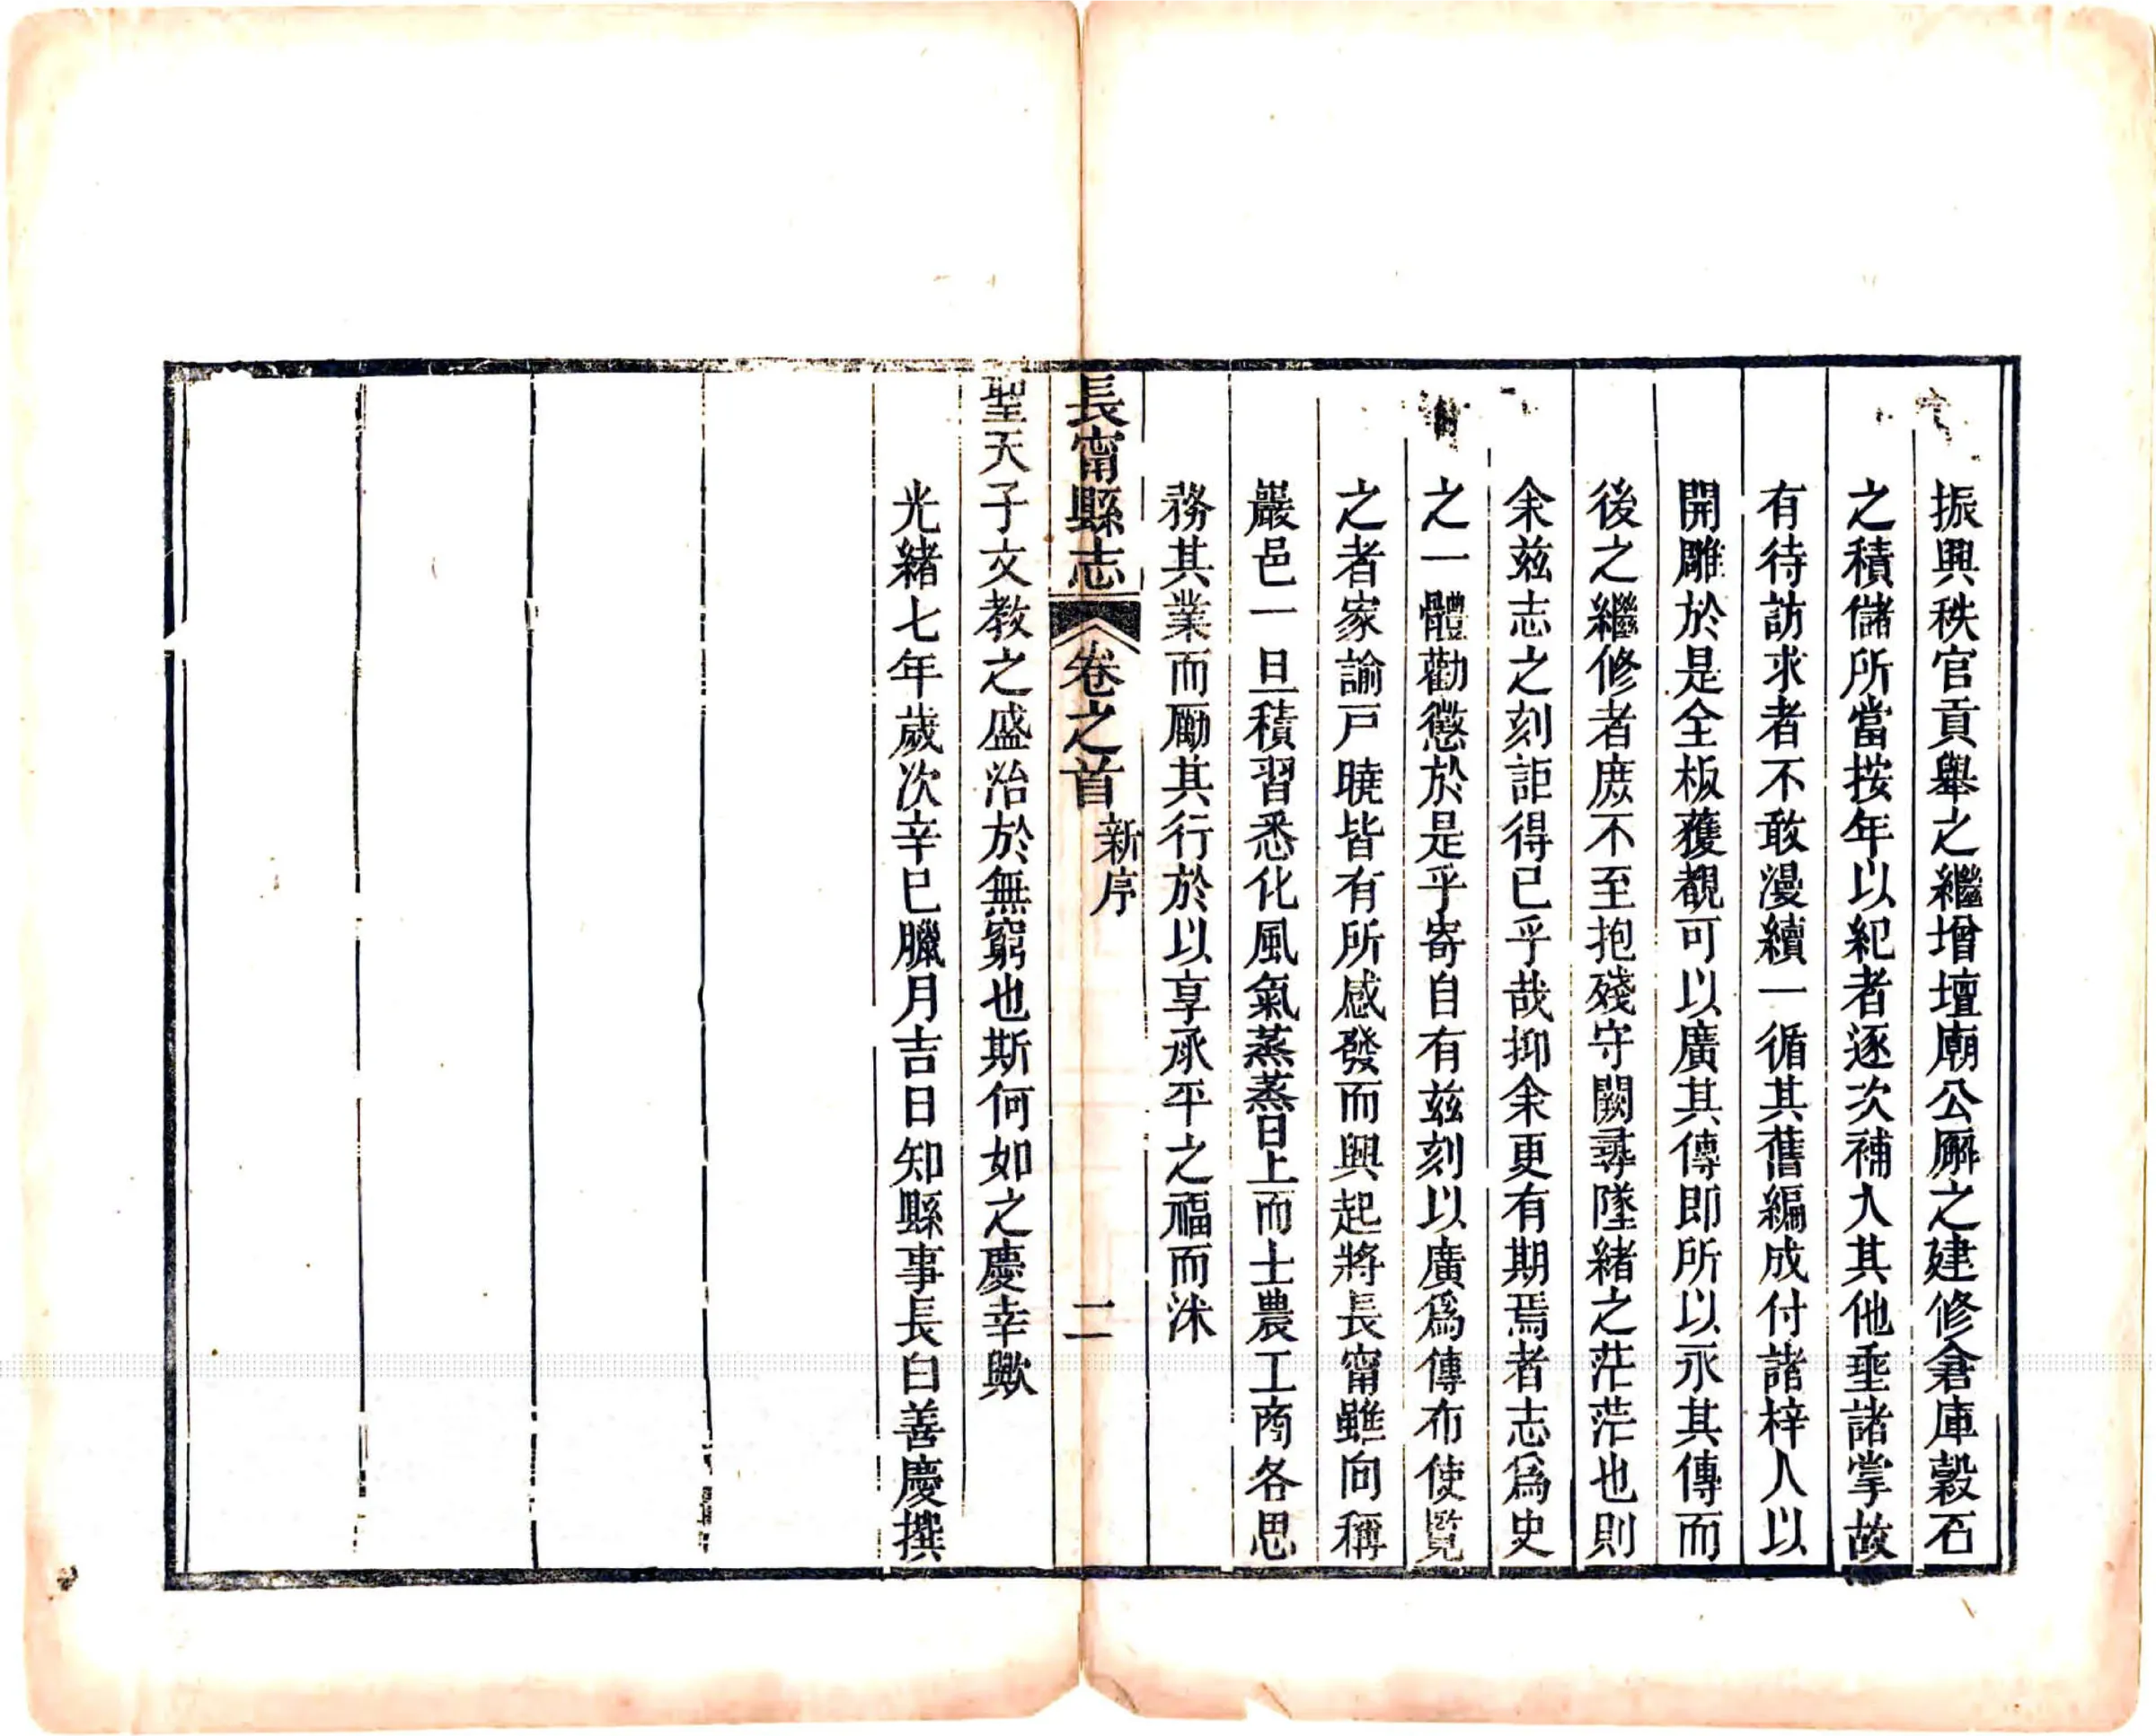 振興秩官貢舉之繼增壇廟公廨之建修倉庫穀石
之積儲所當按年以紀者逐次補入其他垂諸掌故
有待訪求者不敢漫續一循其舊編成付諸梓人以
開雕於是全板獲覩可以廣其傳即所以永其傳而
後之繼修者庶不至抱殘守闕尋墜緒之茫茫也則
余茲志之刻詎得已乎哉抑余更有期焉者志爲史
之一體勸懲於是乎寄自有茲刻以廣爲傳布使覽
之者家諭戸曉皆有所感發而興起將長甯雖向稱
巖邑一旦積習悉化風氣蒸蒸日上而士農工商各思
務其業而勵其行於以享承平之福而沐
長甯縣志 卷之首 新序 二
聖天子文教之盛治於無窮也斯何如之慶幸歟
光緒七年歲次辛巳臘月吉日知縣事長白善慶撰